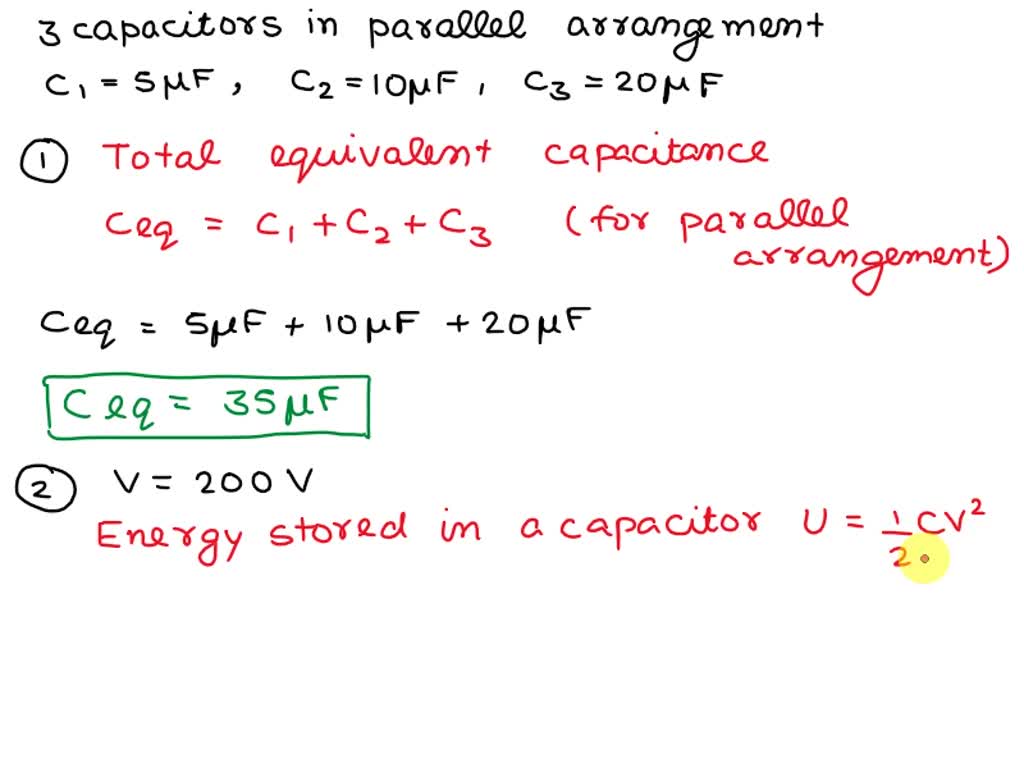 3 capacitors in parallel arrangement
C₁ = 5μF, C₂ = 10μF, C₃ = 20μF
① Total equivalent capacitance
Ceq = C₁ + C₂ + C₃ (for parallel
arrangement)
Ceq = 5μF + 10μF + 20μF
Ceq = 35μF
② V = 200 V
Energy stored in a capacitor U = 1/2 CV²